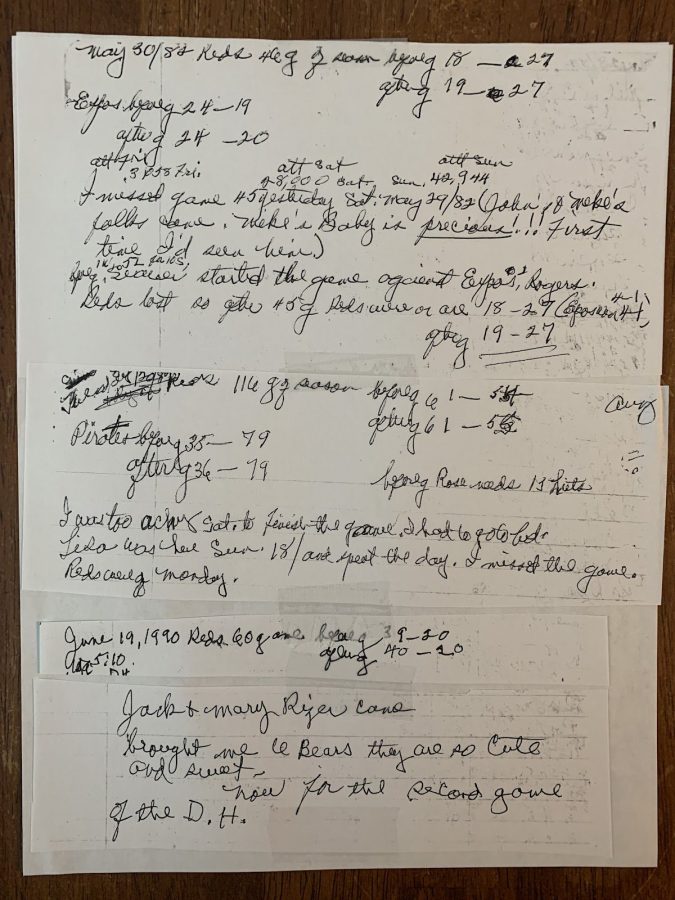 May 30/82 Reds 46 g of season before g 18 — 27
after g 19 — 27
Expos before g 24 — 19
after g 24 — 20
att Fri.
att Sat
att Sun
Fri.
Sat. Sun. 42,944
I missed game 45 yesterday Sat. May 29/82 (John, & Meke's
folks came. Meke's Baby is precious!!! First
time I'd seen him.)
started the game against Expos' Rogers.
Reds lost so after 45 g Reds were or are 18 - 27
after g 19 - 27
Reds 116 g of season before g 61 — 54
after g 61 — 55
Aug
Pirates before g 35 — 79
after g 36 — 79
before g Rose needs 13 hits
I was too achy Sat. to finish the game. I had to go to bed.
Lisa was here Sun. 18/ and spent the day. I missed the game.
Reds Monday.
June 19, 1990 Reds 60 game before g 39 - 20
after g 40 - 20
at 5:10
DH
Jack & Mary Rizer came
brought me 6 Bears they are so Cute
and sweet.
Now for the second game
of the D.H.